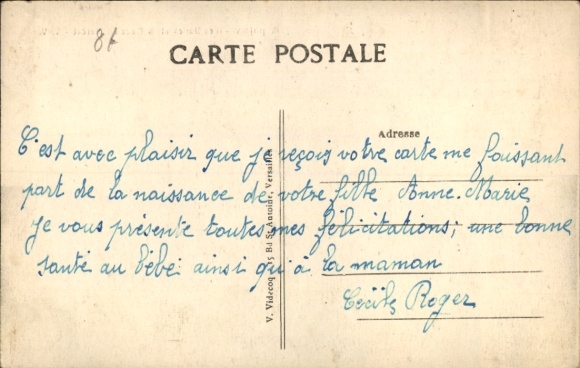 86
CARTE POSTALE
Adresse
C'est avec plaisir que je reçois votre carte me faisant
part de la naissance de votre fille Anne-Marie
je vous présente toutes mes félicitations, une bonne
santé au bébé ainsi qu'à la maman
Cécile Roger
V. Videcoq, 15 Bd St-Antoine, Versailles